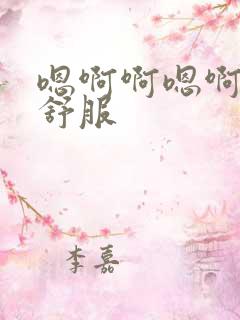 嗯啊啊嗯啊
舒服
李嘉